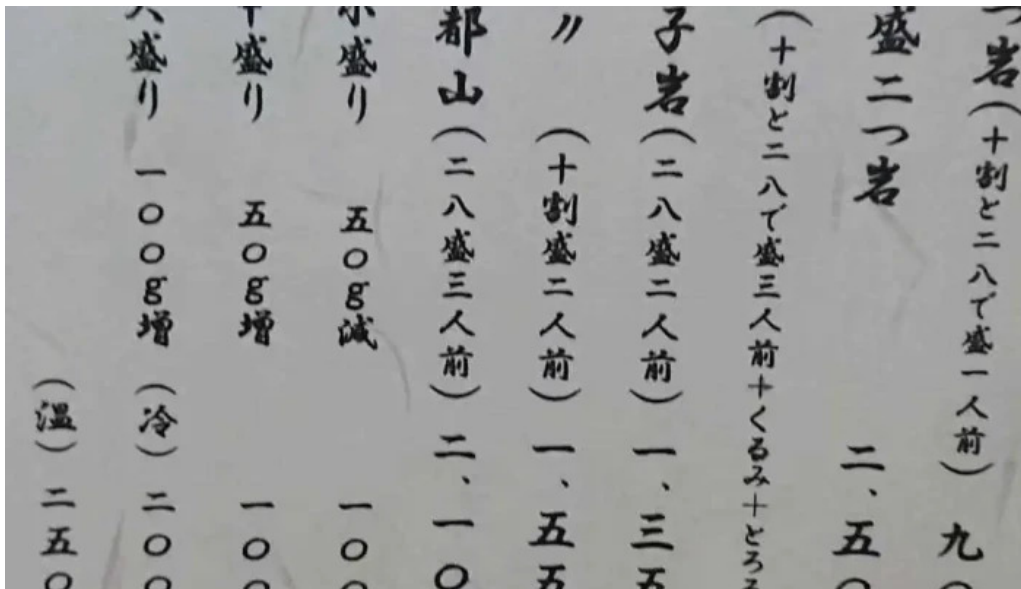 つ岩(十割と二八で盛一人前) 九
盛二つ岩 二、五
(十割と二八で盛三人前+くるみ+とろろ
子岩(二八盛二人前) 一、三五
〃 (十割盛二人前) 一、五五
都山(二八盛三人前) 二、一〇
小盛り 五〇g減 一〇
盛り 五〇g増 一〇
大盛り 一〇〇g増 (冷) 二〇〇
(温) 二五〇